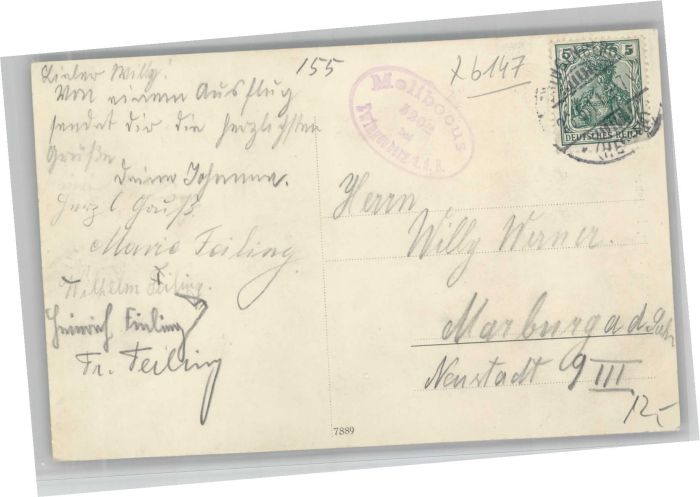 155
Lieber Willy!
Von einem Ausflug
sendet dir die herzlichsten
Grüße
Deine Johanna.
Herzl. Gruß
Marie Feiling
Wilhelm Feiling.
Heinrich Feiling
Fr. Feiling
Melibocus
bei
Xb147
5 5
DEUTSCHES REICH
Herrn
Willy Werner.
Marburg a d Lahn
Neustadt 9 III
12,-
7889